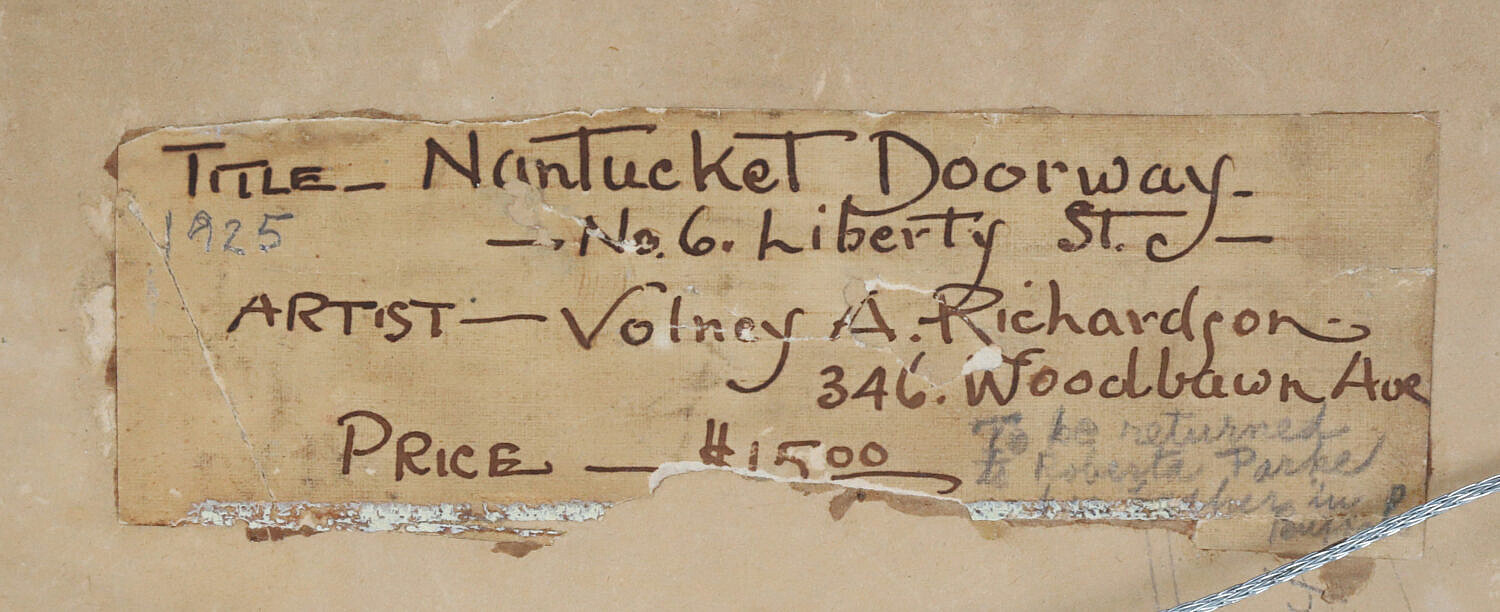 TITLE - Nantucket Doorway -
1925
- No. 6. Liberty St. -
ARTIST - Volney A. Richardson -
346. Woodbawn Ave
PRICE - $15 00
To be returned
to Roberta Parke
in